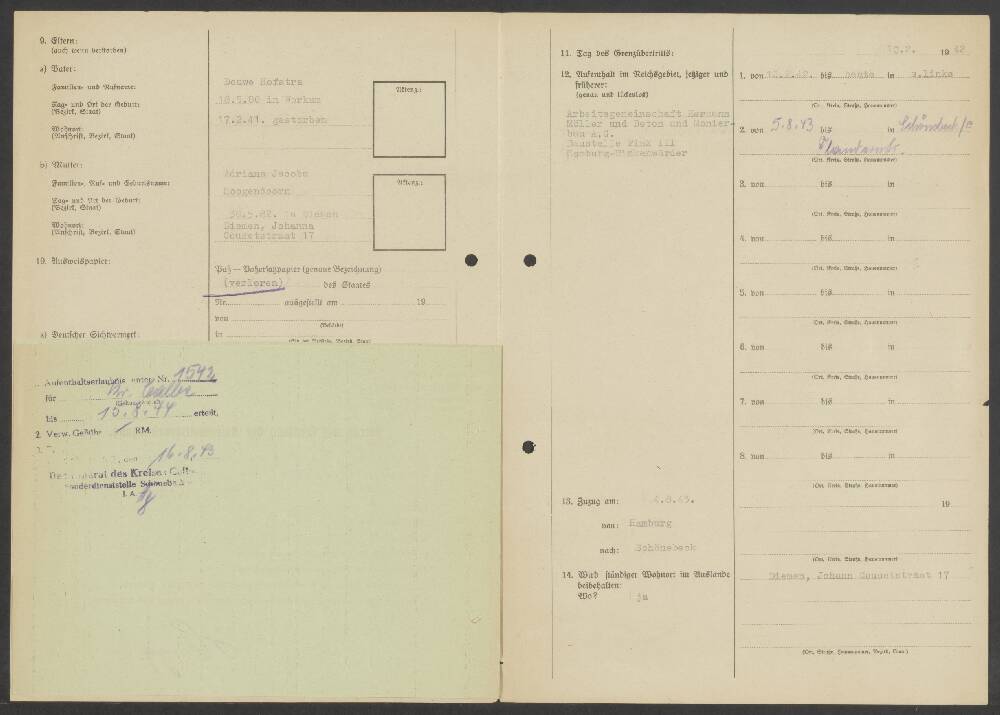 9. Eltern:
(auch wenn verstorben)
a) Vater:
Familien- und Rufname:
Douwe Hofstra
Tag- und Ort der Geburt:
(Bezirk, Staat)
18.5.80 in Workum
Wohnort:
(Anschrift, Bezirk, Staat)
17.2.41. gestorben
Aktenz.:
b) Mutter:
Familien-, Ruf- und Geburtsname:
Adriana Jacoba
Hoogendoorn
Tag- und Ort der Geburt:
(Bezirk, Staat)
in Diemen
Wohnort:
(Anschrift, Bezirk, Staat)
Diemen, Johanna
Couzetstraat 17
Aktenz.:
10. Ausweispapier:
Paß — Paßersatzpapier (genaue Bezeichnung)
(verloren) des Staates
Nr. ausgestellt am 19
von
(Behörde)
a) Deutscher Sichtvermerk:
in
Aufenthaltserlaubnis unter Nr. 1542
für
bis 15.8.44 erteilt.
2. Verw. Gebühr / RM.
den 16.8.43
des Kreises
Sonderdienststelle
I. A.
11. Tag des Grenzübertritts:
10.2. 1942
12. Aufenthalt im Reichsgebiet, jetziger und
früherer:
(genau und lückenlos)
Arbeitsgemeinschaft Hermann
Möller und Beton und Monier-
bau A.G.
Baustelle Fink III
Hamburg-Finkenwärder
1. von bis heute in s.links
(Ort, Kreis, Straße, Hausnummer)
2. von 5.8.43 bis in Schönebeck/E
(Ort, Kreis, Straße, Hausnummer)
3. von bis in
(Ort, Kreis, Straße, Hausnummer)
4. von bis in
(Ort, Kreis, Straße, Hausnummer)
5. von bis in
(Ort, Kreis, Straße, Hausnummer)
6. von bis in
(Ort, Kreis, Straße, Hausnummer)
7. von bis in
(Ort, Kreis, Straße, Hausnummer)
8. von bis in
(Ort, Kreis, Straße, Hausnummer)
13. Zuzug am: 4.8.43.
19
von: Hamburg
nach: Schönebeck
(Ort, Kreis, Straße, Hausnummer)
14. Wird ständiger Wohnort im Auslande
beibehalten:
Wo? ja
Diemen, Johann Couzetstraat 17
(Ort, Straße, Hausnummer, Bezirk, Staat)